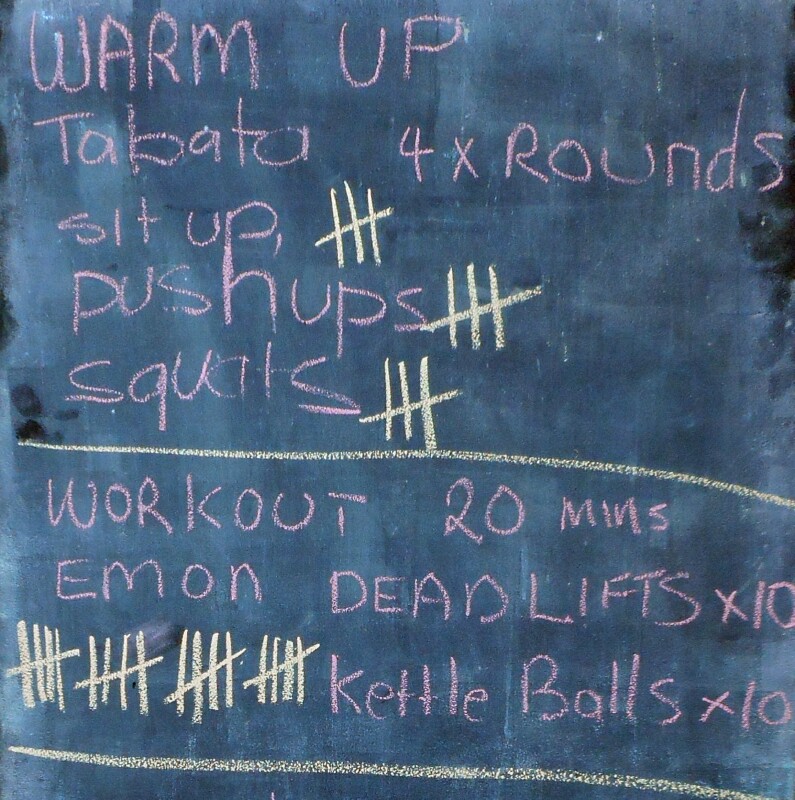 WARM UP
Tabata 4 x Rounds
sit up,
pushups
squats
WORKOUT 20 mins
EMON DEADLIFTS x10
Kettle Balls x10